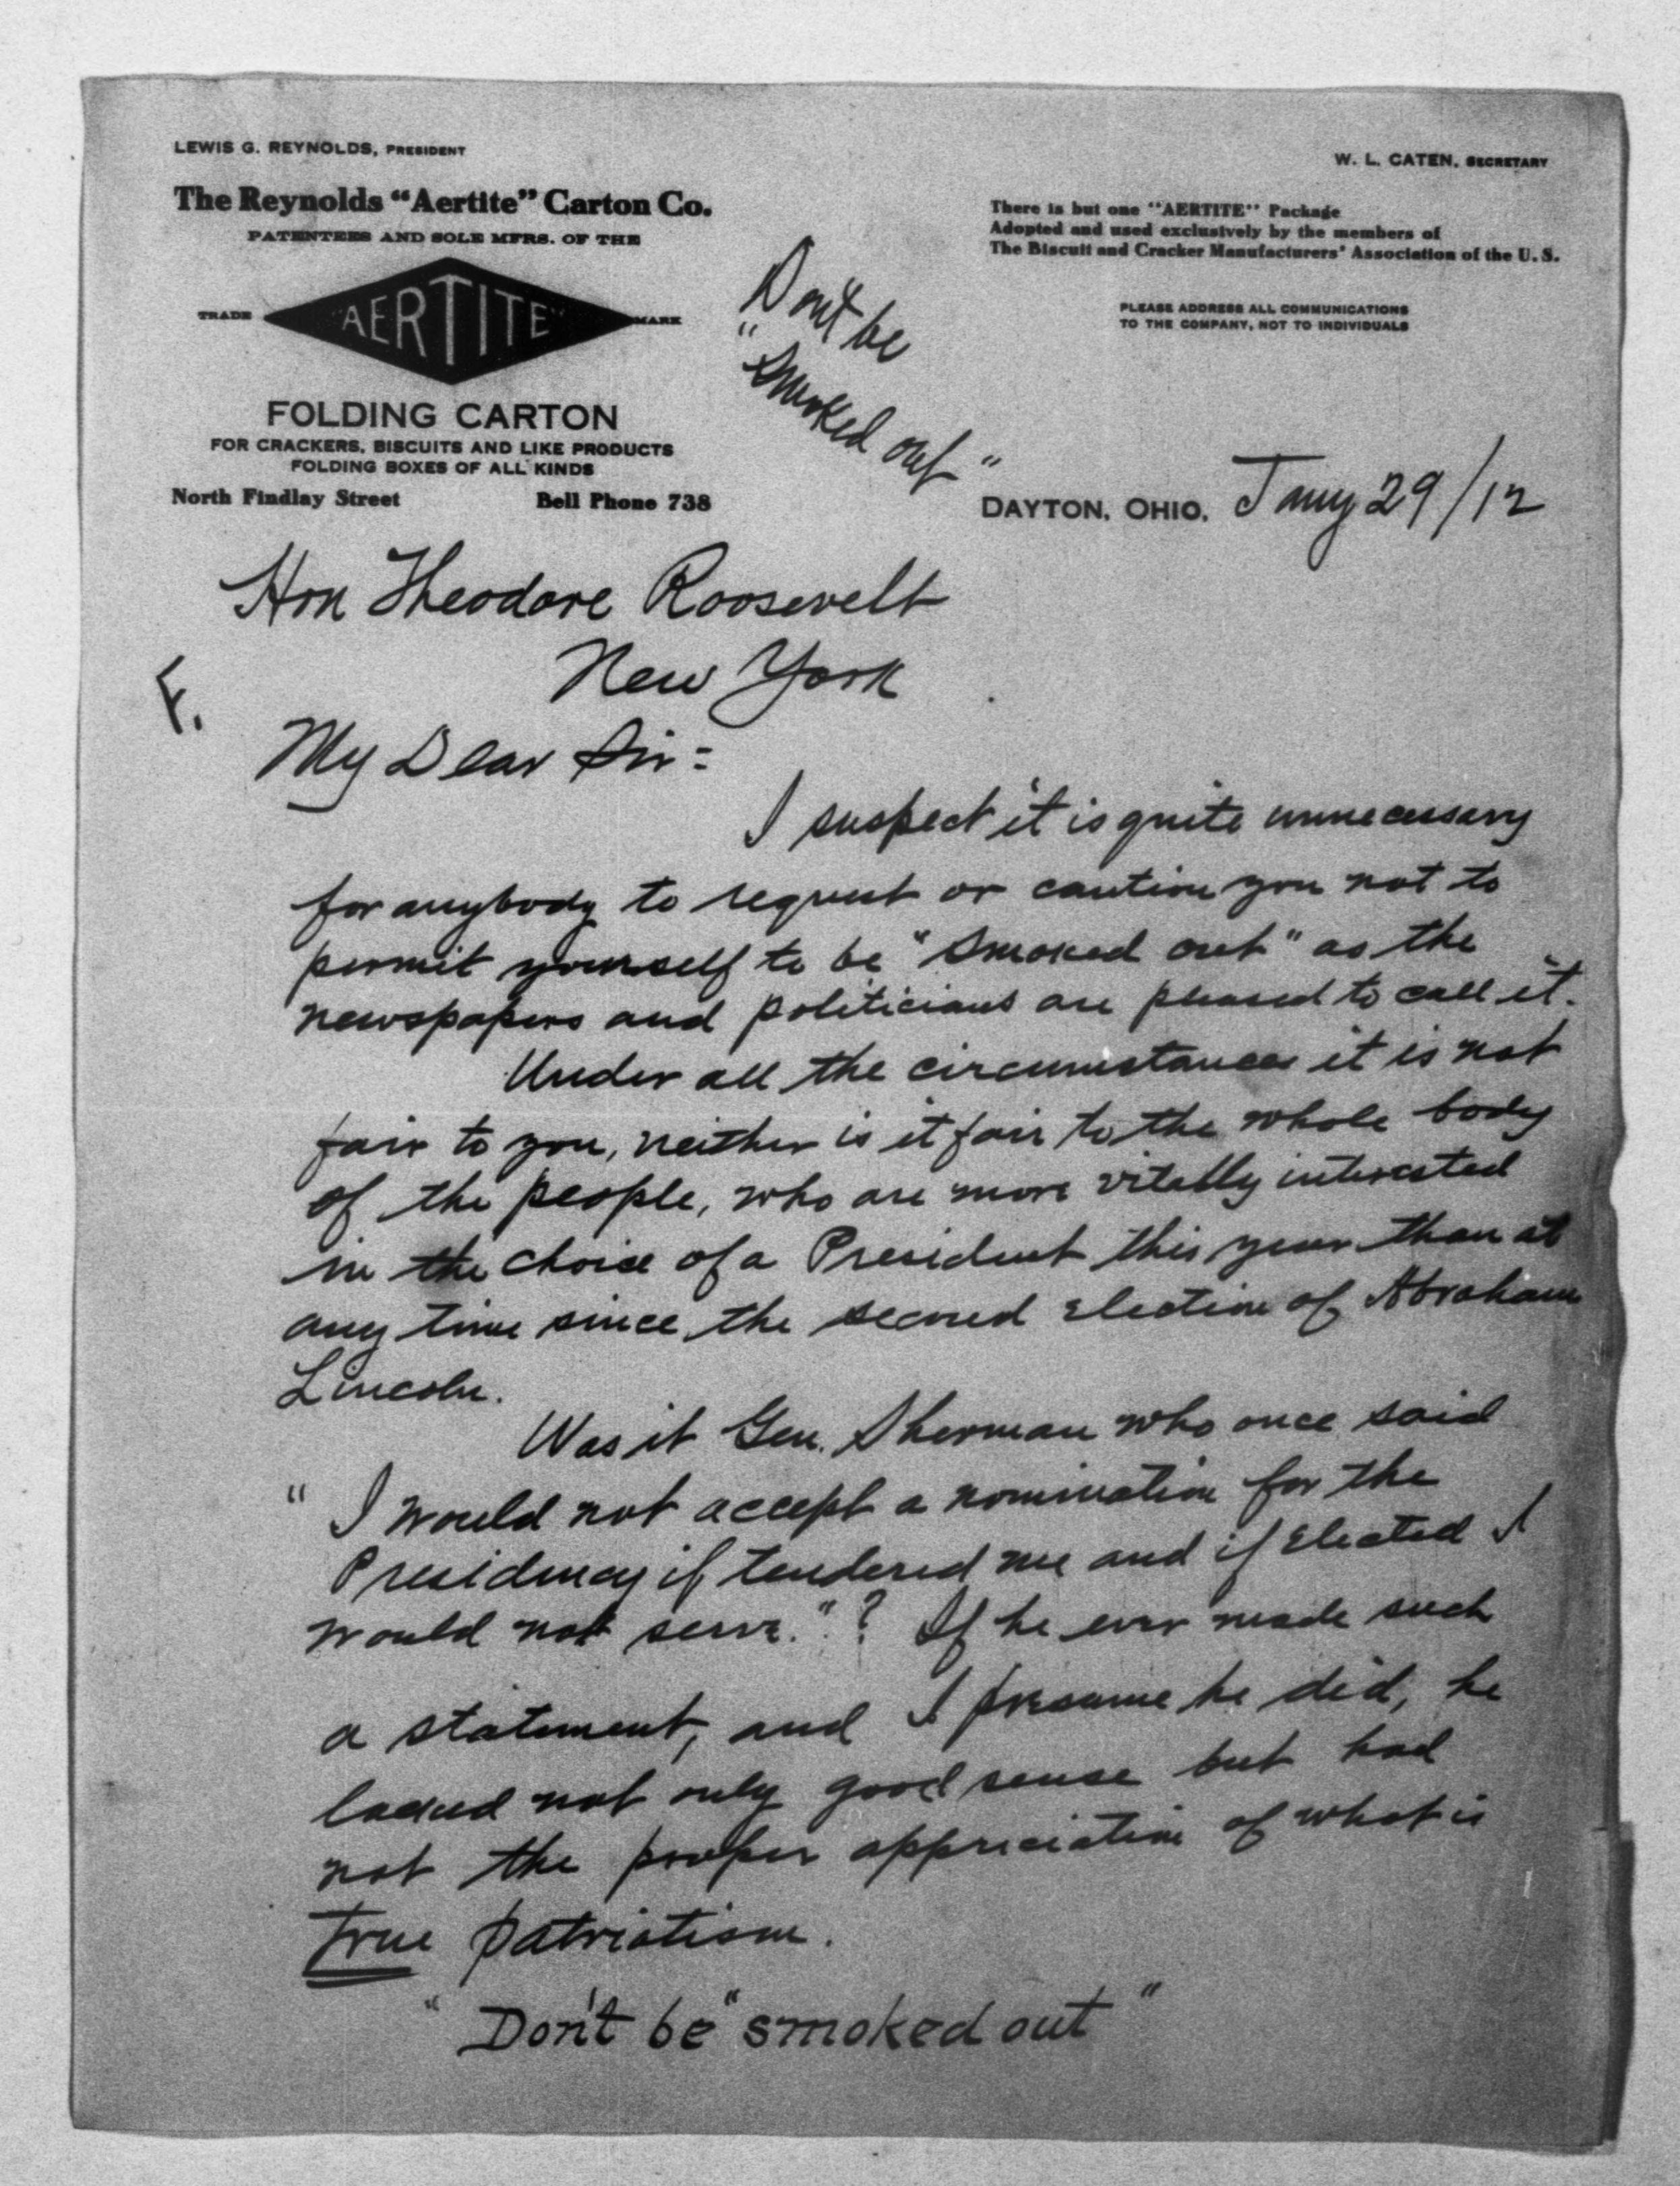 LEWIS G. REYNOLDS, PRESIDENT
W. L. CATEN, SECRETARY
The Reynolds "Aertite" Carton Co.
PATENTEES AND SOLE MFRS. OF THE
TRADE "AERTITE" MARK
FOLDING CARTON
FOR CRACKERS, BISCUITS AND LIKE PRODUCTS
FOLDING BOXES OF ALL KINDS
North Findlay Street Bell Phone 738
There is but one "AERTITE" Package
Adopted and used exclusively by the members of
The Biscuit and Cracker Manufacturers' Association of the U. S.
PLEASE ADDRESS ALL COMMUNICATIONS
TO THE COMPANY, NOT TO INDIVIDUALS
Don't be
"Smoked out"
DAYTON, OHIO, Jany 29/12
Hon Theodore Roosevelt
New York
F.
My Dear Sir:
I suspect it is quite unnecessary
for anybody to request or caution you not to
permit yourself to be "Smoked out" as the
newspapers and politicians are pleased to call it.
Under all the circumstances it is not
fair to you, neither is it fair to the whole body
of the people, who are more vitally interested
in the choice of a President this year than at
any time since the second election of Abraham
Lincoln.
Was it Gen. Sherman who once said
"I would not accept a nomination for the
Presidency if tendered me and if elected I
would not serve."? If he ever made such
a statement, and I presume he did, he
lacked not only good sense but had
not the proper appreciation of what is
true patriotism.
"Don't be "smoked out"